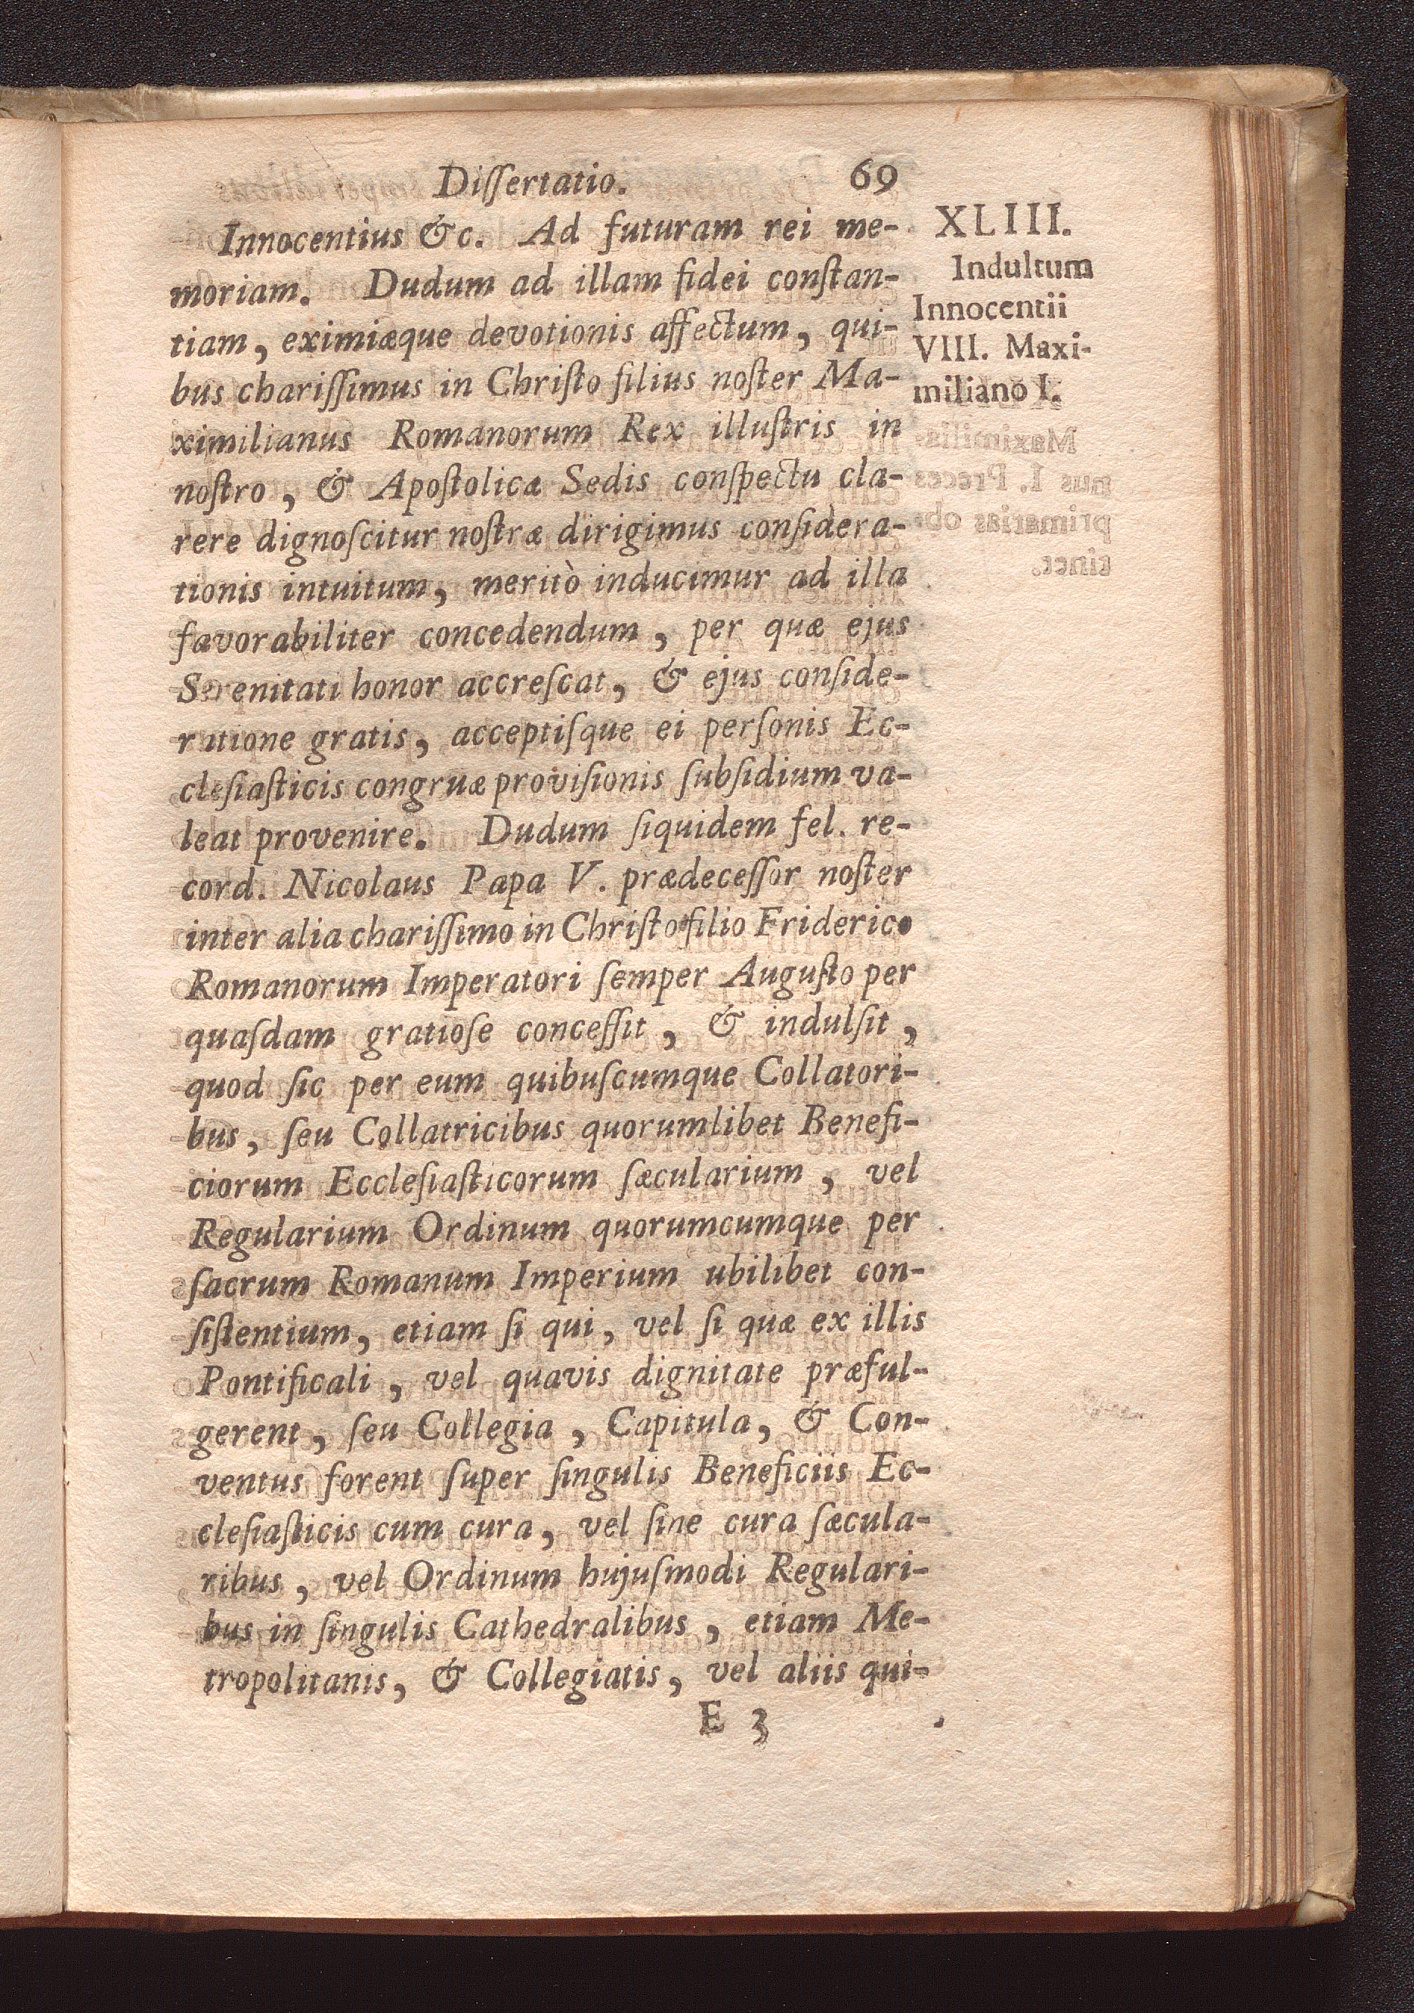 Dissertatio. 69
Innocentius &c. Ad futuram rei me-
moriam. Dudum ad illam fidei constan-
tiam, eximiæque devotionis affectum, qui-
bus charissimus in Christo filius noster Ma-
ximilianus Romanorum Rex illustris in
nostro, & Apostolicæ Sedis conspectu cla-
rere dignoscitur nostræ dirigimus considera-
tionis intuitum, meritò inducimur ad illa
favorabiliter concedendum, per quæ ejus
Serenitati honor accrescat, & ejus conside-
ratione gratis, acceptisque ei personis Ec-
clesiasticis congruæ provisionis subsidium va-
leat provenire. Dudum siquidem fel. re-
cord. Nicolaus Papa V. prædecessor noster
inter alia charissimo in Christo filio Friderico
Romanorum Imperatori semper Augusto per
quasdam gratiose concessit, & indulsit,
quod sic per eum quibuscumque Collatori-
bus, seu Collatricibus quorumlibet Benefi-
ciorum Ecclesiasticorum sæcularium, vel
Regularium Ordinum quorumcumque per
sacrum Romanum Imperium ubilibet con-
sistentium, etiam si qui, vel si quæ ex illis
Pontificali, vel quavis dignitate præful-
gerent, seu Collegia, Capitula, & Con-
ventus forent super singulis Beneficiis Ec-
clesiasticis cum cura, vel sine cura sæcula-
ribus, vel Ordinum hujusmodi Regulari-
bus in singulis Cathedralibus, etiam Me-
tropolitanis, & Collegiatis, vel aliis qui-
E 3
XLIII.
Indultum
Innocentii
VIII. Maxi-
miliano I.